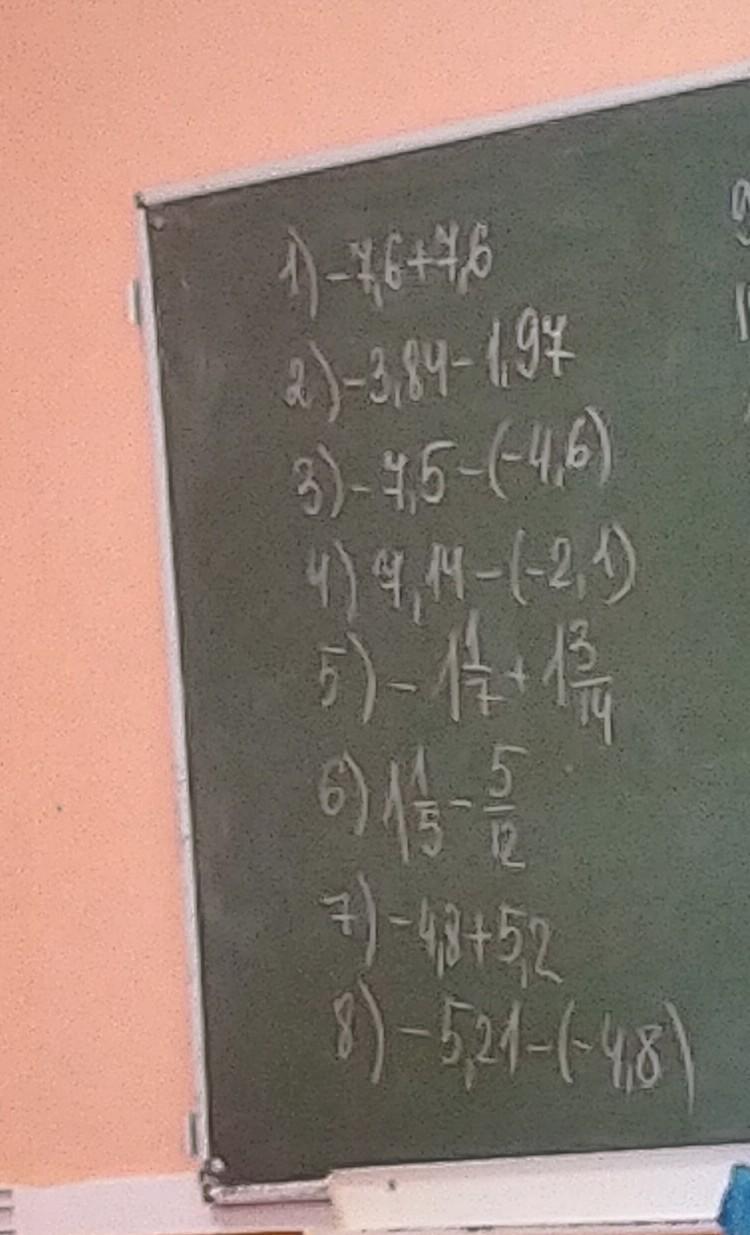 1) -7,6+7,6
2) -3,84-1,97
3) -7,5-(-4,6)
4) 7,14-(-2,1)
5) - 1 1/7 + 1 3/14
6) 1 1/5 - 5/12
7) -4,8+5,2
8) -5,21-(-4,8)